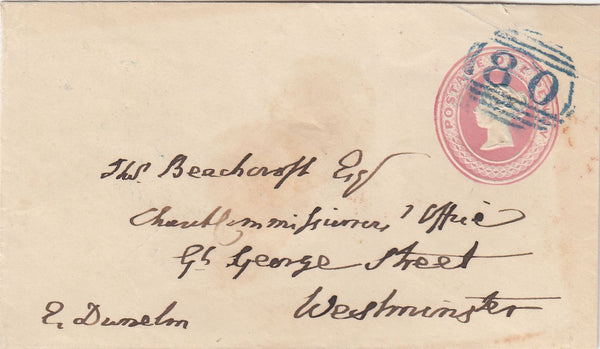 POSTAGE ONE PENNY
80
Thos. Beechcroft Esq
Church Commissioners' Office
Gt. George Street
Westminster
E. Dunelm